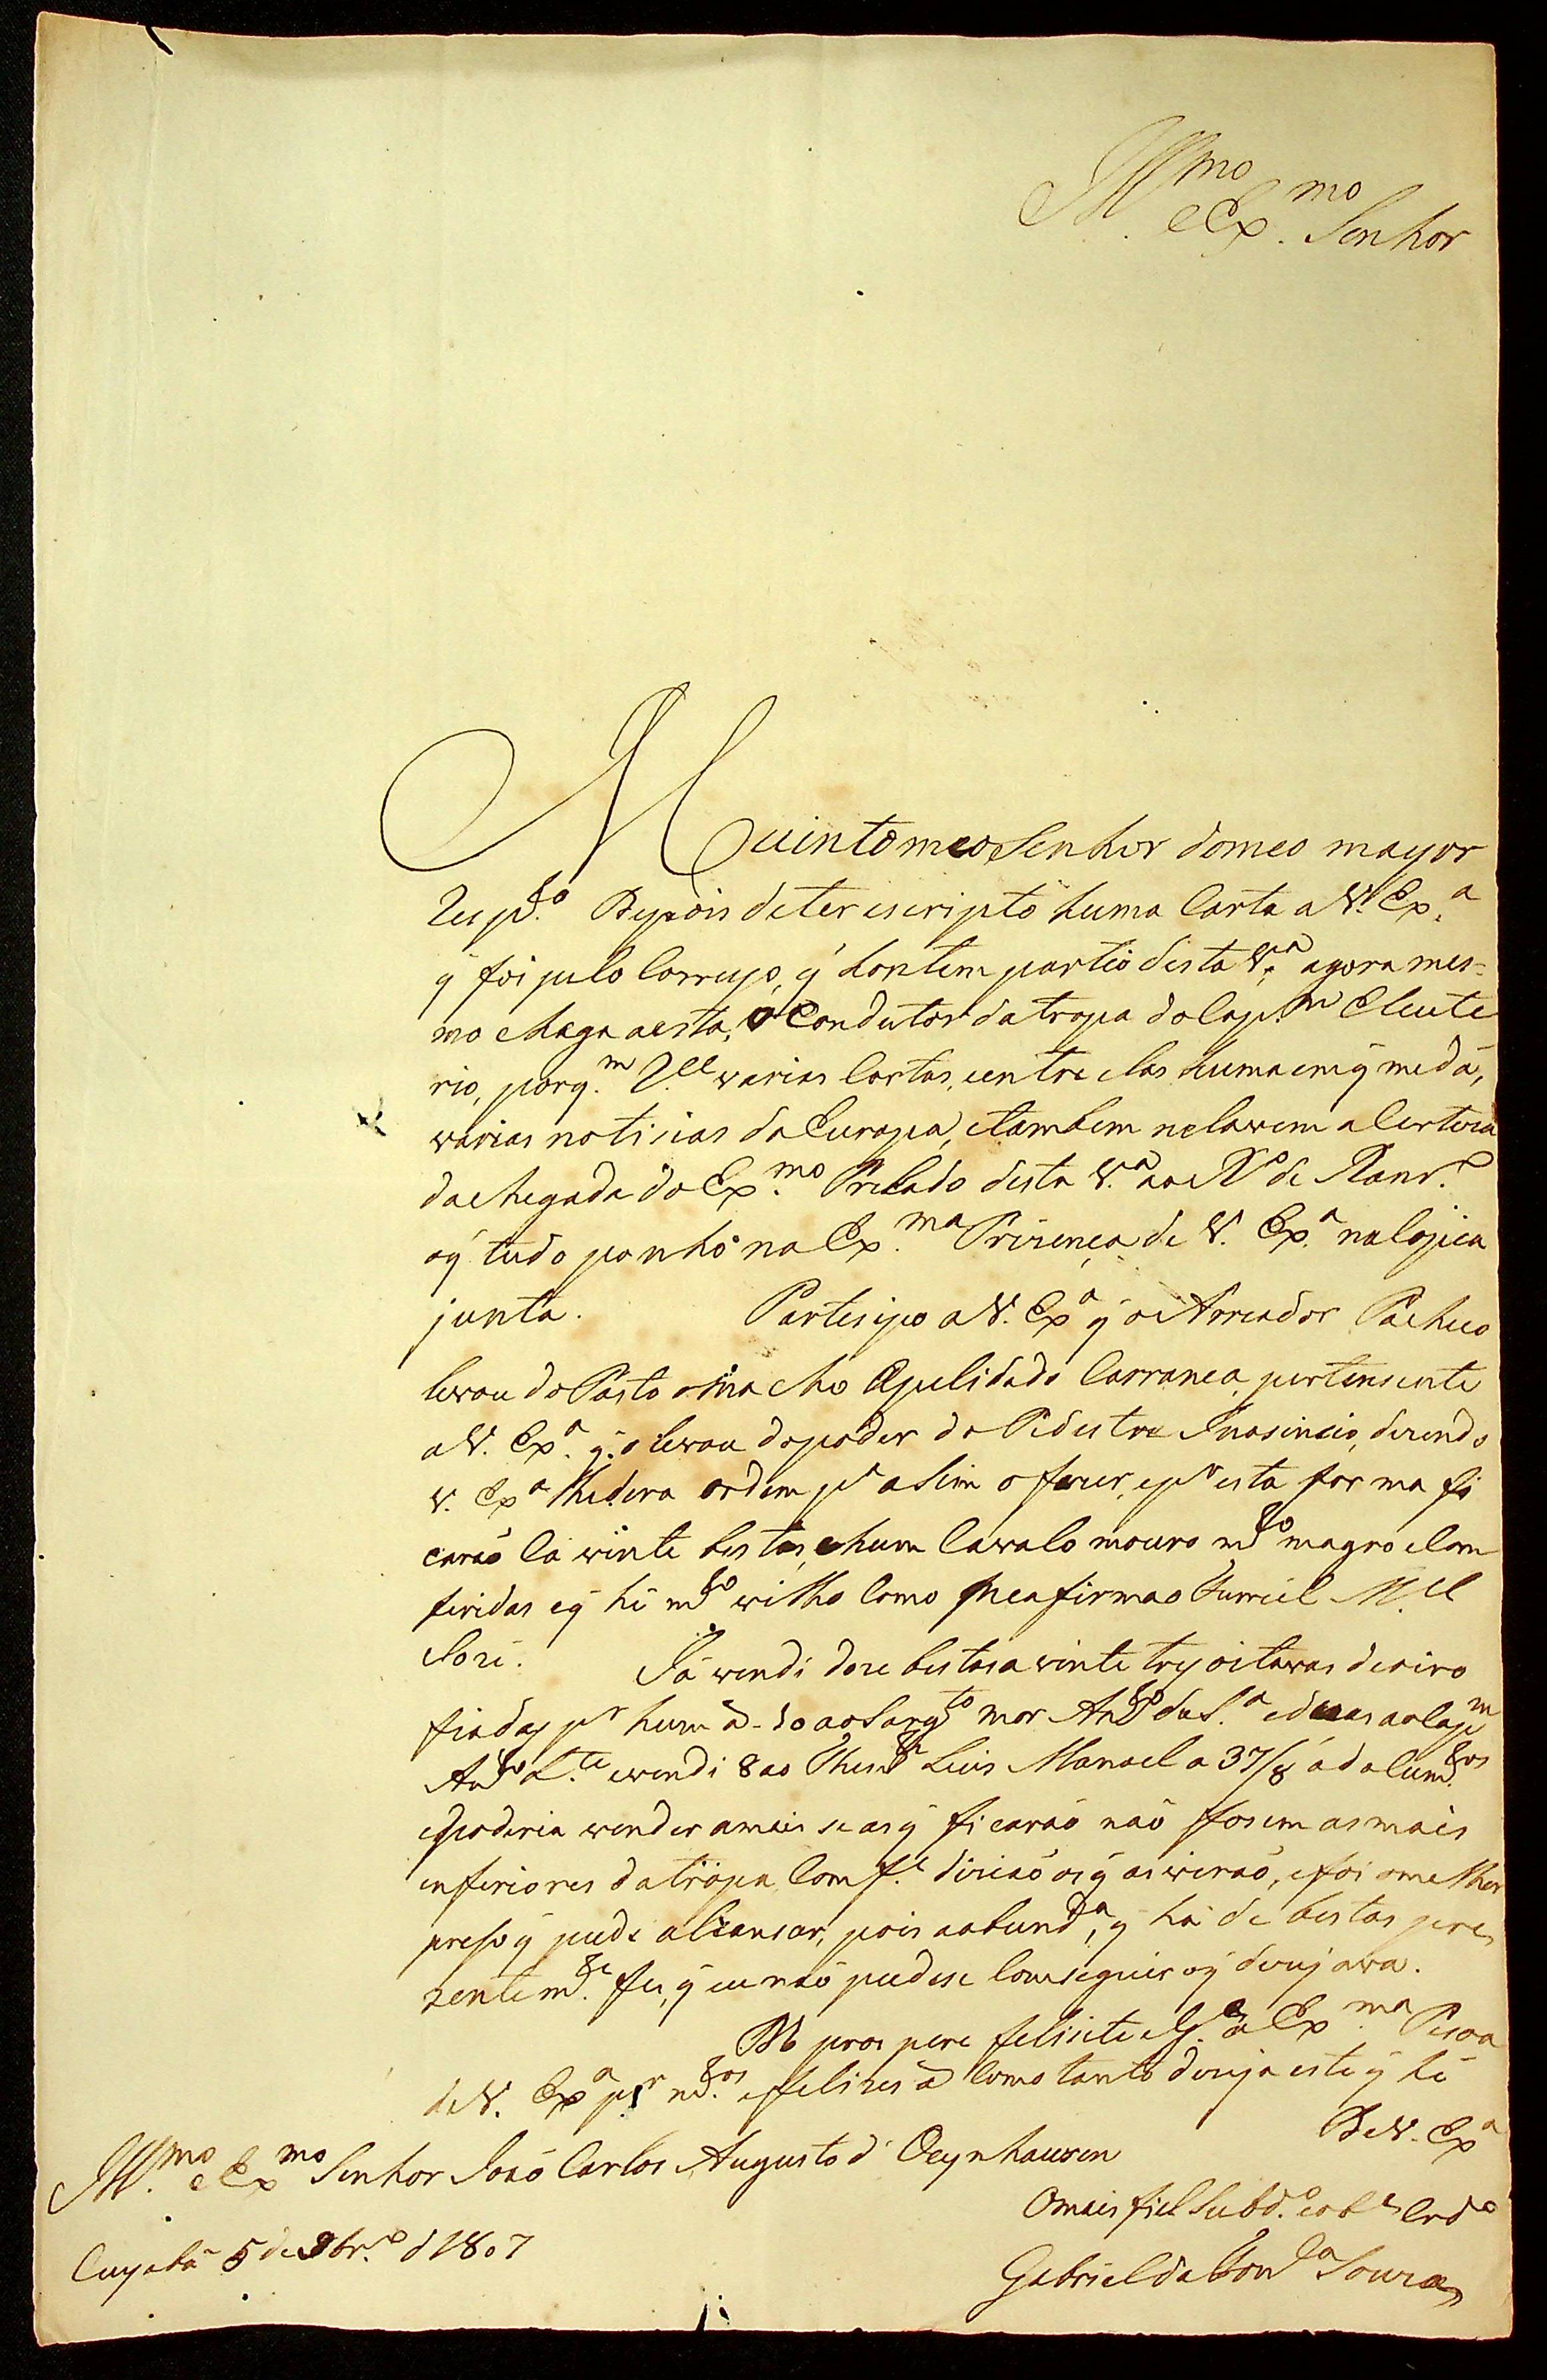 Ill.mo
e Ex.mo Senhor
Muinto meo Senhor do meo mayor
Resp.to Depois de ter escripto huma Carta a V. Ex.a
q̃ foi pelo Correyo, q̃ hontem partio desta V.a agora mes=
mo chega a esta, o Condutor da tropa do Cap.m Eleute
rio, por q.m R.ce varias Cartas, e entre elas huma em q̃ me dá,
varias notisias da Europa, e tambem nela vem a Certeza
da chegada do Ex.mo Prelado desta V.a ao R.o de Janr.o
o q̃ tudo ponho na Ex.ma Prizença de V. Ex.a na Copia
junta. Partesipo a V. Ex.a q̃ o Arreador Pacheco
levou do Pasto o macho Apelidado Carranca, pertensente
a V. Ex.a q̃ o levou do poder do Pedestre Inosensio, dizendo
V. Ex.a lhe dera ordem p.a asim o fazer, e p.r esta forma fi
carão lá vinte bestas, e hum Cavalo mouro m.to magro e Com
feridas e q̃ hé m.to velho Como me afirma o Furriel M.el
Joze. Já vendi doze bestas a vinte tres oitavas de oiro
fiadas p.r hum añ - 10 ao Sarg.to mor An.to da S.a e duas ao Cap.m
An.to L.te e vendi 8 ao Then.te Luis Manoel a 37/8 ad a Cum.tos
e poderia vender a mais se as q̃ ficarão não fosem as mais
inferiores da tropa Comf.e dicerão os q̃ as virão, e foi o melhor
preso q̃ pude alcansar, pois a abund.a, q̃ há de bestas pre
zentem.te fez, q̃ eu não pudese Comseguir o q̃ dezejava.
Ds prospere felicite e G.e a Ex.ma Pesoa
de V. Ex.a p.r m.tos e felizes añ Como tanto dezeja este q̃ hé
De V. Ex.a
Ill.mo e Ex.mo Senhor João Carlos Augusto d' Oeynhausen
O mais fiel Subd.o e ob.e Cr.do
Cuyabá 5 de 9br.o d 1807
Gabriel da Fon.ca Souza